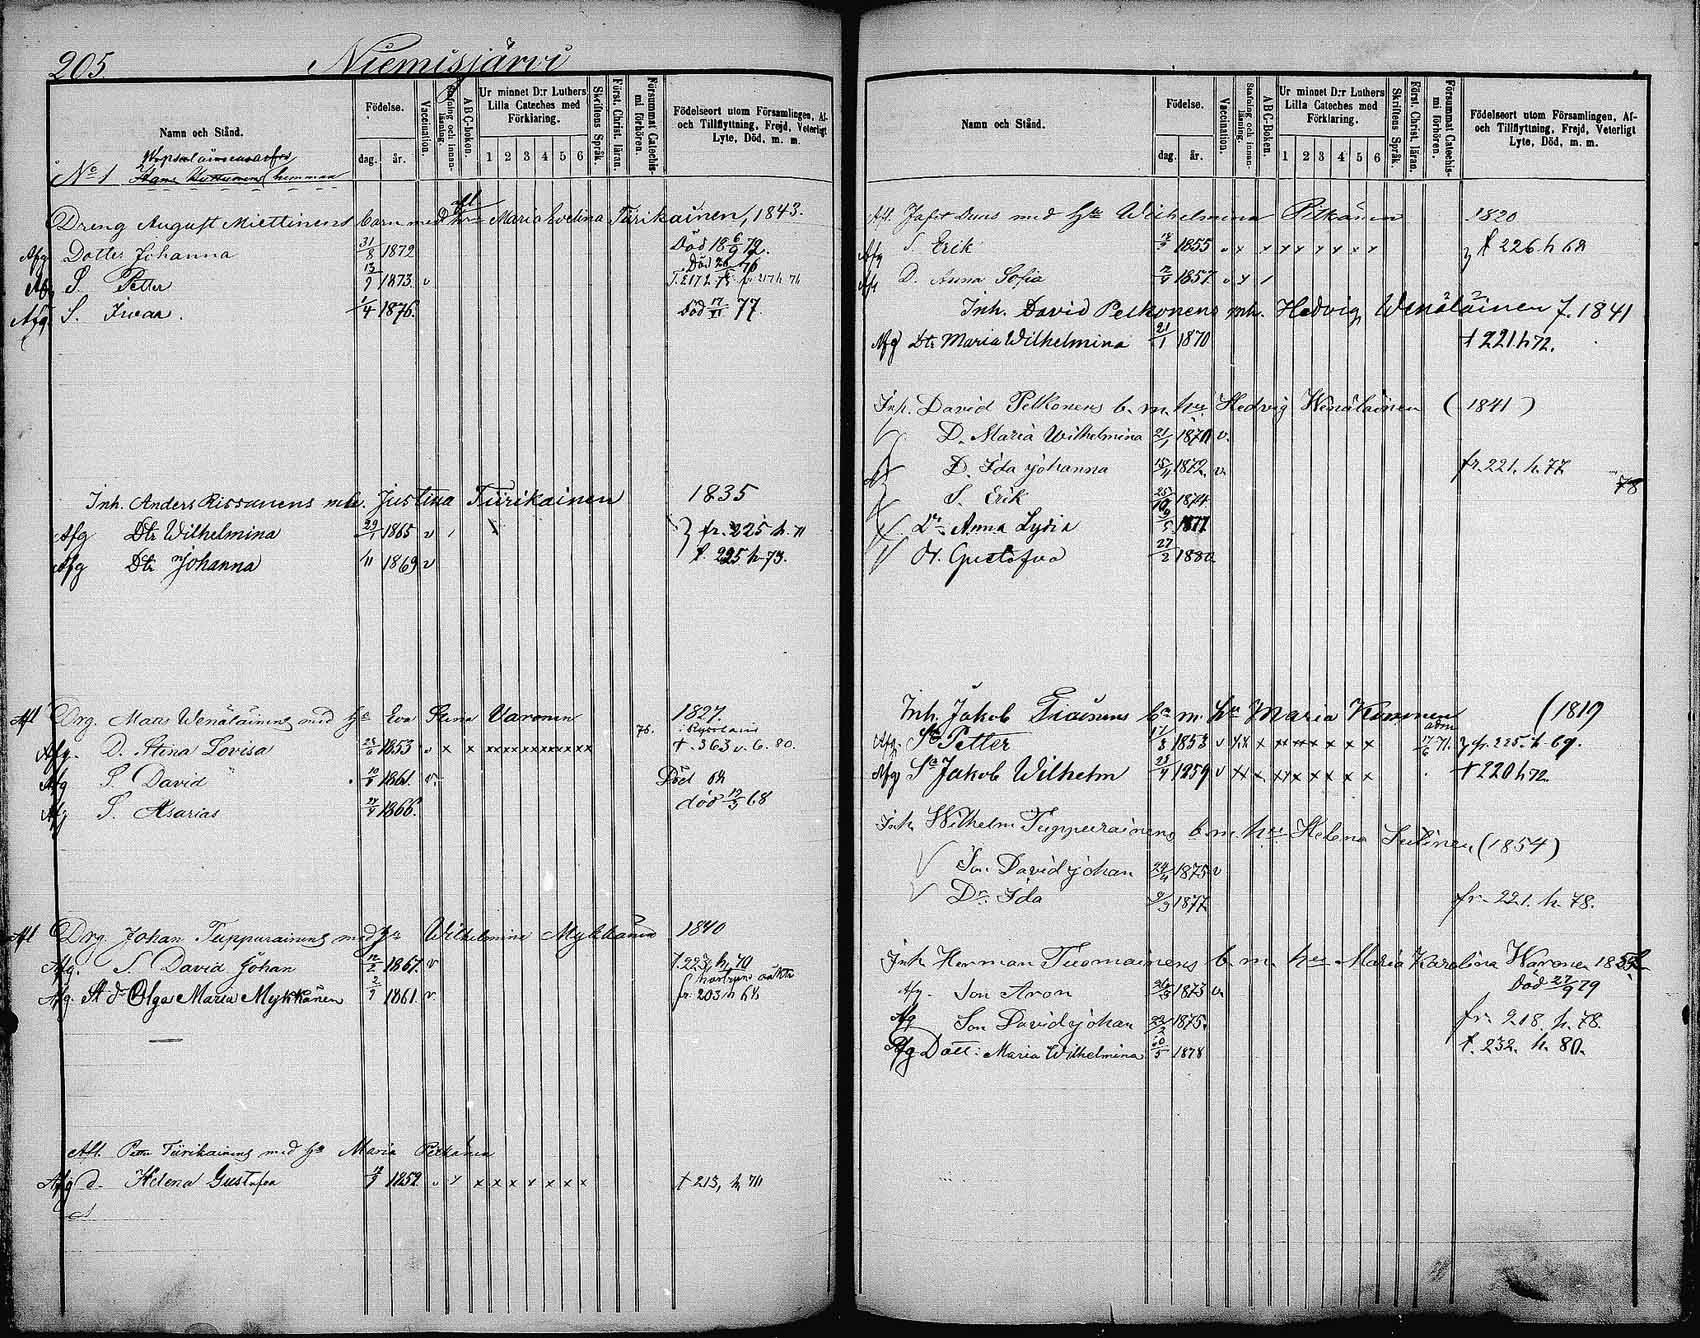 205 Niemisjärvi
Namn och Stånd.
Födelse.
dag. år.
Vaccination.
Stafning och innan-läsning.
ABC-boken.
Ur minnet D:r Luthers Lilla Cateches med Förklaring.
1 2 3 4 5 6
Skriftens Språk.
Först. Christ. läran.
Försummat Catechis-mi förhören.
Födelseort utom Församlingen, Af- och Tillflyttning, Frejd, Veterligt Lyte, Död, m. m.
No 1 hemman
Dreng August Miettinens barn med Maria Evelina Tiirikainen, 1843.
Afg Dotter Johanna 31/8 1872 Död 18 6/9 72.
Afg S. Petter 13/9 1873 v
Afg. S. Ivar. 1/4 1876. Död 17/11 77.
Inh. Anders Rissanens m h. Justina Tiirikainen 1835
Afg Dtr Wilhelmina 29/1 1865 v fr. 225 h. 71
Afg Dtr Johanna 1869 v f. 225 h. 73.
Afl Drg. Mats Wenäläinens med hu Eva Stina Varonen 1827.
Afg. D. Stina Lovisa 1853 v x x x x x x x x x x x 75. + 363 v. 6. 80.
Afg S. David 1861. v. Död 68
Afg S. Asarias 1866. död 12/5 68
Afl Drg. Johan Tuppurainens med hu Wilhelmina Mykkänen 1840
Afg. S. David Johan 12/2 1867. v f. 223 h. 70
Afg. Olga Maria Mykkänen 2/9 1861. v. fr. 203 h 68
Afl. Petter Tiirikainens med hu Maria Pitkänen
Afg d. Helena Gustafva 1852 v x x x x x x x x + 213, h 70
Namn och Stånd.
Födelse.
dag. år.
Vaccination.
Stafning och innan-läsning.
ABC-Boken.
Ur minnet D:r Luthers Lilla Cateches med Förklaring.
1 2 3 4 5 6
Skriftens Språk.
Först. Christ. läran.
Försummat Catechis-mi förhören.
Födelseort utom Församlingen, Af- och Tillflyttning, Frejd, Veterligt Lyte, Död, m. m.
Afl. Jafet med hu Wilhelmina Pitkänen 1820
Afg S. Erik 1855 v x x x x x x x x } f 226 h 68
Afg D. Anna Sofia 1857 v x
Inh. David Pelkonens m h. Hedvig Wenäläinen f. 1841
Afg Dtr Maria Wilhelmina 21/1 1870 + 221 h 72.
Inh. David Pelkonens b. m. hu Hedvig Wenäläinen (1841)
D. Maria Wilhelmina 21/1 1870 v.
D. Ida Johanna 15/11 1872. v. fr. 221. h. 77
78
S. Erik 25/10 1874.
Dr Anna Lydia 9/5 1877
Gustafva 27/2 1880.
Inh. Jakob Tiainens bn m. hu Maria Komonen (1819
Afg. Sn Petter 1853 v x x x x x x x x x 17/6 71. } fr. 225. h. 69.
Afg Sn Jakob Wilhelm 1859 v x x x x x x x x x + 220 h 72
Inh Wilhelm Tuppurainens b. m. hu Helena Lutinen (1854)
Son David Johan 24/4 1875 v
Dr. Ida 9/9 1877 fr. 221. h. 78.
Inh Herman Tuomainens b m. hu Maria Karolina Waronen
Död 27/9 79
Afg. Son Aron 1873 v.
Afg Son David Johan 1875. fr. 218. h. 78.
Afg Dott: Maria Wilhelmina 1878 f. 232. h. 80.